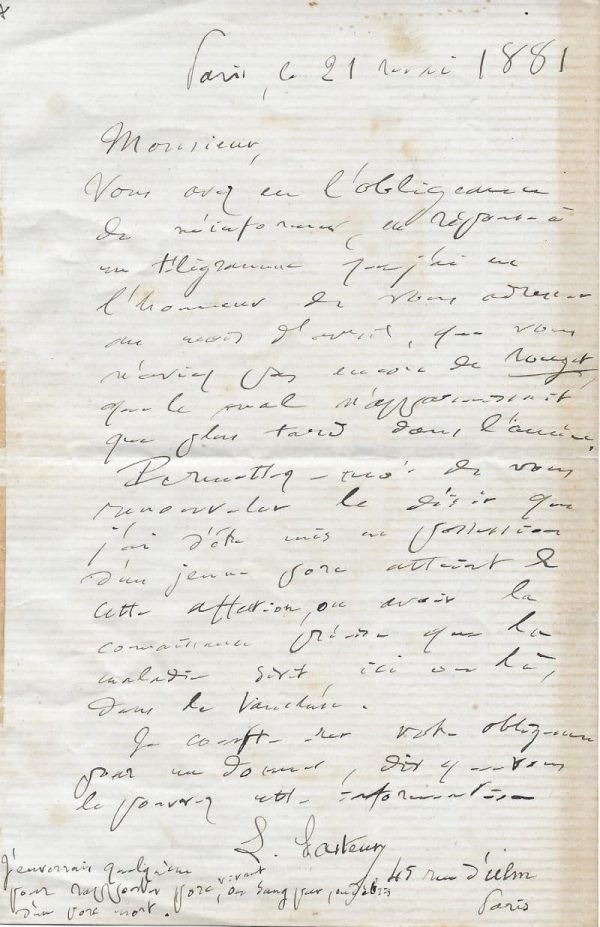 Paris, le 21 mai 1881
Monsieur,
Vous avez eu l'obligeance
de m'informer, en réponse à
un télégramme que j'ai eu
l'honneur de vous adresser
au mois d'avril, que vous
n'aviez pas encore de rouget,
que le mal n'apparaissait
que plus tard dans l'année.
Permettez-moi de vous
renouveler le désir que
j'ai d'être mis en possession
d'un jeune porc atteint de
cette affection, ou avoir la
connaissance précise que la
maladie sévit, ici ou là,
dans le Vaucluse.
Je compte sur votre obligeance
pour me donner, dès que vous
le pourrez cette information
L. Pasteur
45 rue d'Ulm
Paris
J'enverrais quelqu'un
pour rapporter porc vivant, ou sang pur,
d'un porc mort.